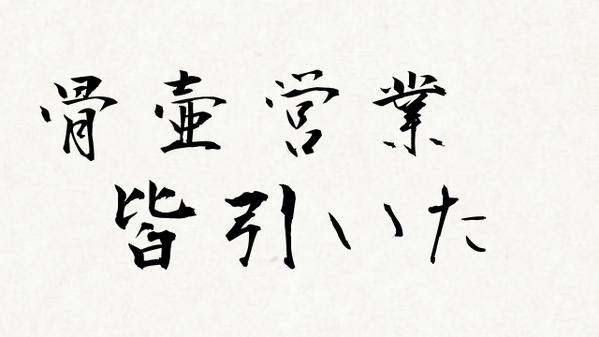 骨壷営業
皆引いた